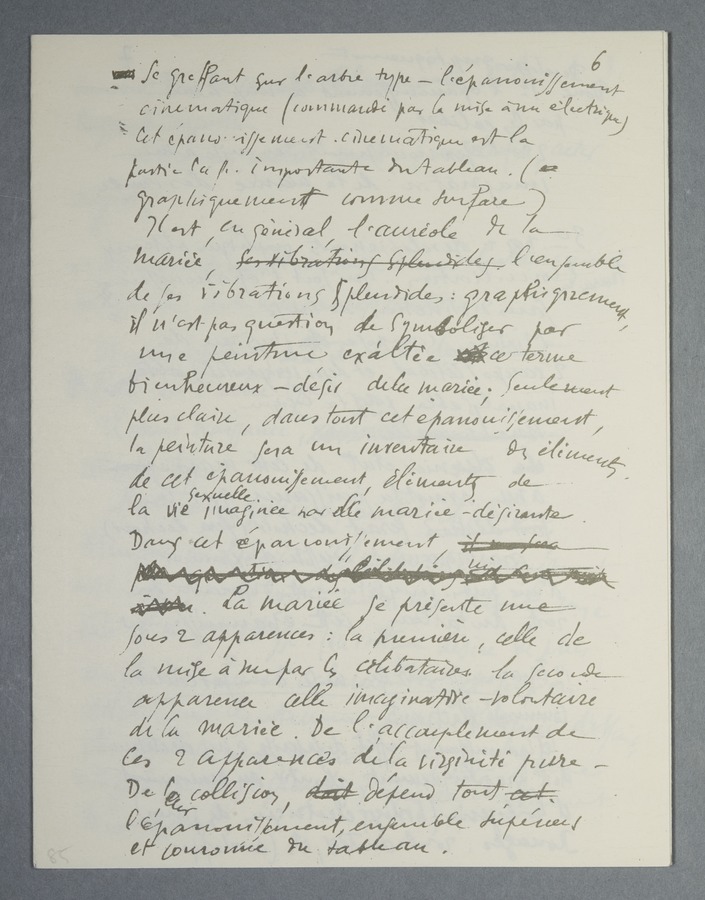 6
Se greffant sur l'arbre type – l'épanouissement
cinématique (commandé par la mise à nu électrique)
Cet épanouissement cinématique est la
partie la p. importante du tableau. (
graphiquement comme surface)
Il est, en général, l'auréole de la
mariée, ses vibrations splendides l'ensemble
de ses vibrations splendides : graphiquement,
il n'est pas question de symboliser par
une peinture exaltée ce terme
bienheureux – désir de la mariée ; seulement
plus claire, dans tout cet épanouissement,
la peinture sera un inventaire des éléments
de cet épanouissement, éléments de
la vie sexuelle imaginée par elle mariée-désirante.
Dans cet épanouissement, il ne sera
pas question
La mariée se présente nue
sous 2 apparences : la première, celle de
la mise à nu par les célibataires la seconde
apparence celle imaginative-volontaire
de la mariée. De l'accouplement de
ces 2 apparences de la virginité pure –
De leur collision, doit dépend tout cet
l'épanouissement, ensemble supérieur
et couronne du tableau.
85